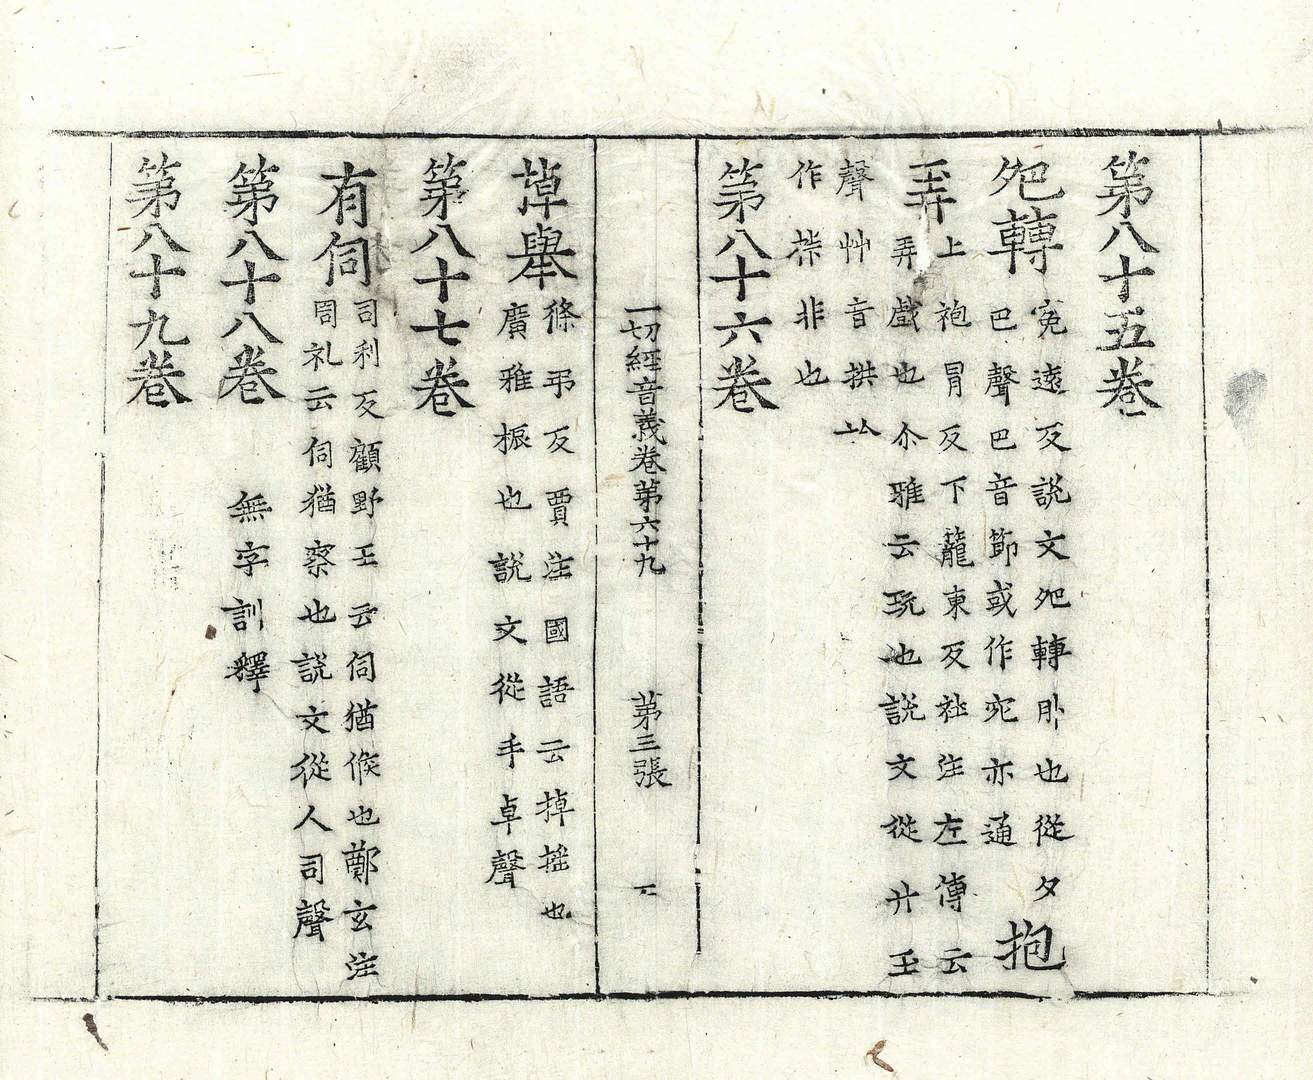 第八十五卷
夗轉 寃遠反說文夗轉卧也從夕
巴聲巴音節或作宛亦通 抱
弄 上袍冐反下籠東反社注左傳云
弄戲也尒雅云玩也說文從廾王
聲艸音拱
作非也
第八十六卷
一切經音義卷第六十九 第三張
掉舉 條弔反賈注國語云掉搖也
廣雅振也說文從手卓聲
第八十七卷
有伺 司利反顧野王云伺猶候也鄭玄注
周礼云伺猶察也說文從人司聲
第八十八卷 無字訓釋
第八十九卷